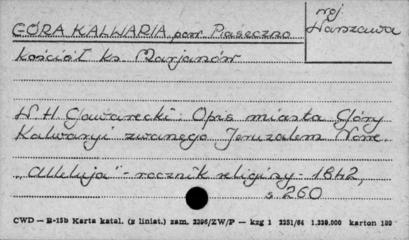 GÓRA KALWARIA pow. Piaseczno
woj
Warszawa
kościół ks. Marjanów
W. H. Gawarecki: Opis miasta Góry
Kalwaryi zwanego Jeruzalem Nowe.
„Alleluja" - rocznik religijny - 1842,
s. 260
CWD — B-15b Karta katal. (z liniat.) zam. 2396/ZW/P — kzg 1 2251/64 1.320.000 karton 180